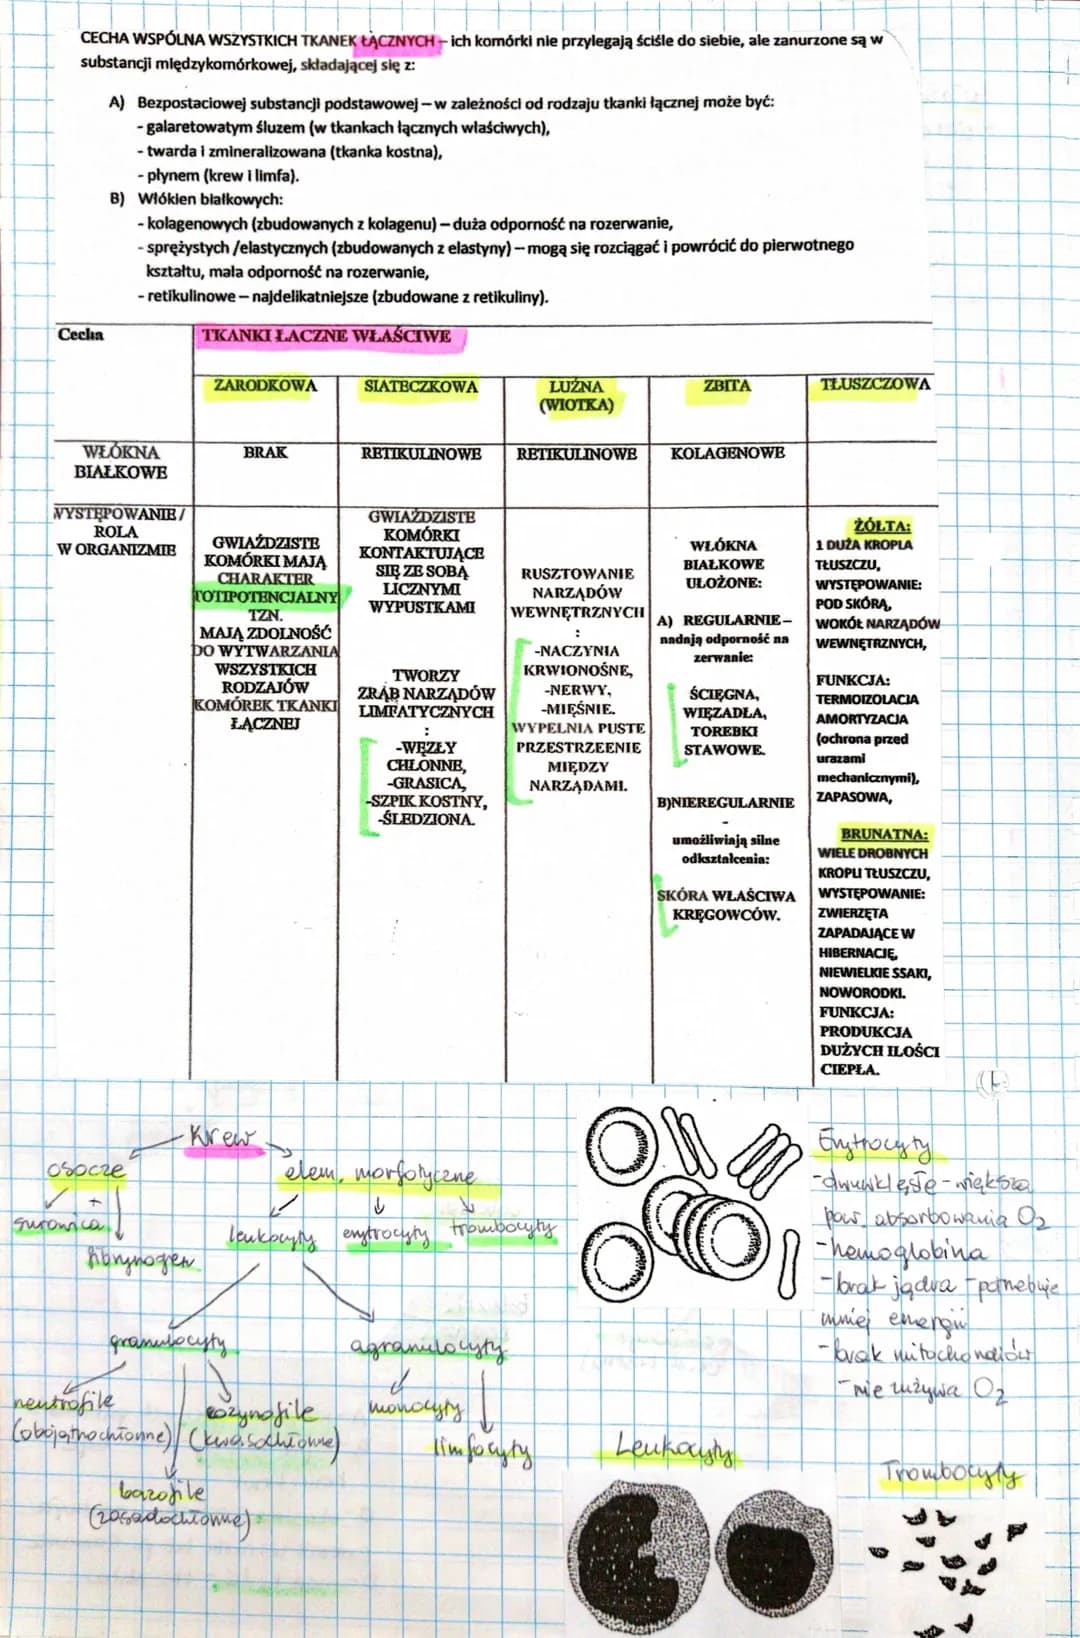 CECHA WSPÓLNA WSZYSTKICH TKANEK ŁĄCZNYCH – ich komórki nie przylegają ściśle do siebie, ale zanurzone są w
substancji międzykomórkowej, składającej się z:
A) Bezpostaciowej substancji podstawowej – w zależności od rodzaju tkanki łącznej może być:
- galaretowatym śluzem (w tkankach łącznych właściwych),
- twarda i zmineralizowana (tkanka kostna),
- płynem (krew i limfa).
B) Włókien białkowych:
- kolagenowych (zbudowanych z kolagenu) – duża odporność na rozerwanie,
- sprężystych /elastycznych (zbudowanych z elastyny) – mogą się rozciągać i powrócić do pierwotnego
kształtu, mała odporność na rozerwanie,
- retikulinowe – najdelikatniejsze (zbudowane z retikuliny).
Cecha
TKANKI ŁACZNE WŁAŚCIWE
ZARODKOWA
SIATECZKOWA
LUŹNA
(WIOTKA)
ZBITA
TŁUSZCZOWA
WŁÓKNA
BIAŁKOWE
BRAK
RETIKULINOWE
RETIKULINOWE
KOLAGENOWE
WYSTĘPOWANIE/
ROLA
W ORGANIZMIE
GWIAŹDZISTE
KOMÓRKI MAJĄ
CHARAKTER
TOTIPOTENCJALNY
TZN.
MAJĄ ZDOLNOŚĆ
DO WYTWARZANIA
WSZYSTKICH
RODZAJÓW
KOMÓREK TKANKI
ŁĄCZNEJ
GWIAŹDZISTE
KOMÓRKI
KONTAKTUJĄCE
SIĘ ZE SOBĄ
LICZNYMI
WYPUSTKAMI
TWORZY
ZRĄB NARZĄDÓW
LIMFATYCZNYCH
:
-WĘZŁY
CHŁONNE,
-GRASICA,
-SZPIK KOSTNY,
-ŚLEDZIONA.
RUSZTOWANIE
NARZĄDÓW
WEWNĘTRZNYCH
:
-NACZYNIA
KRWIONOŚNE,
-NERWY,
-MIĘŚNIE.
WYPEŁNIA PUSTE
PRZESTRZEENIE
MIĘDZY
NARZĄDAMI.
WŁÓKNA
BIAŁKOWE
UŁOŻONE:
A) REGULARNIE –
nadają odporność na
zerwanie:
ŚCIĘGNA,
WIĘZADŁA,
TOREBKI
STAWOWE.
B)NIEREGULARNIE
-
umożliwiają silne
odkształcenia:
SKÓRA WŁAŚCIWA
KRĘGOWCÓW.
ŻÓŁTA:
1 DUŻA KROPLA
TŁUSZCZU,
WYSTĘPOWANIE:
POD SKÓRĄ,
WOKÓŁ NARZĄDÓW
WEWNĘTRZNYCH,
FUNKCJA:
TERMOIZOLACJA
AMORTYZACJA
(ochrona przed
urazami
mechanicznymi),
ZAPASOWA,
BRUNATNA:
WIELE DROBNYCH
KROPLI TŁUSZCZU,
WYSTĘPOWANIE:
ZWIERZĘTA
ZAPADAJĄCE W
HIBERNACJĘ,
NIEWIELKIE SSAKI,
NOWORODKI.
FUNKCJA:
PRODUKCJA
DUŻYCH ILOŚCI
CIEPŁA.
Krew
osocze
elem. morfotyczne
surowica
+
fibrynogen
leukocyty
erytrocyty
trombocyty
granulocyty
agranulocyty
neutrofile
(obojętnochłonne)
eozynofile
(kwasochłonne)
bazofile
(zasadochłonne)
monocyty
limfocyty
Erytrocyty
- dwuwklęsłe - większa
pow. absorbowania O2
- hemoglobina
- brak jądra - potrzebuje
mniej energii
- brak mitochondriów
- nie zużywa O2
Leukocyty
Trombocyty